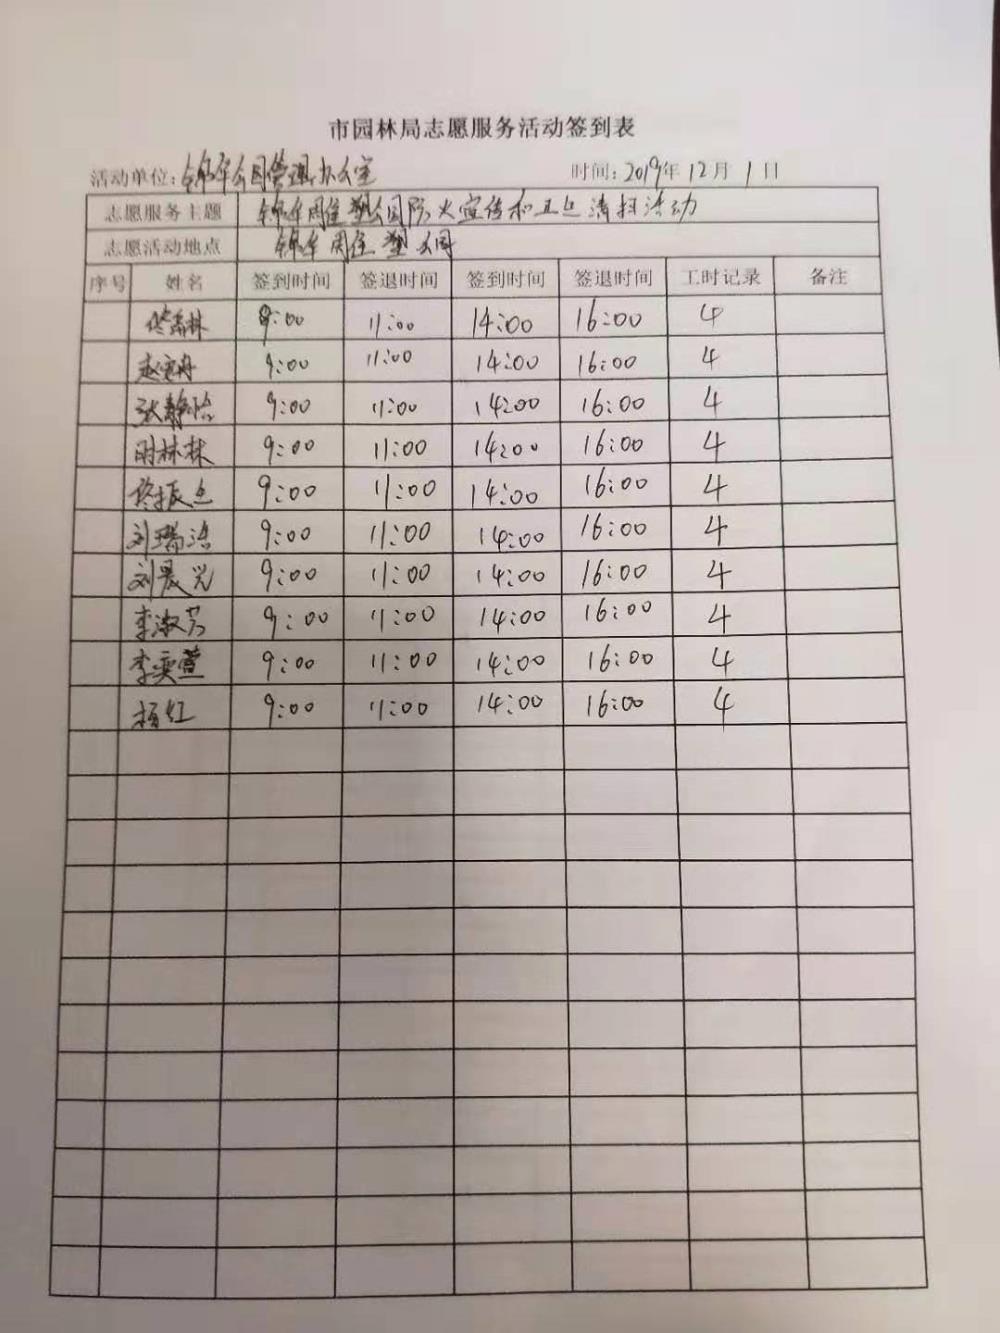 市园林局志愿服务活动签到表
活动单位:锦华公园管理办公室 时间:2019年12月1日
志愿服务主题 锦华周佳塑公园防火宣传和卫生清扫活动
志愿活动地点 锦华周佳塑公园
序号 姓名 签到时间 签退时间 签到时间 签退时间 工时记录 备注
林 9:00 11:00 14:00 16:00 4
赵 9:00 11:00 14:00 16:00 4
张静怡 9:00 11:00 14:00 16:00 4
林林 9:00 11:00 14:00 16:00 4
佟振 9:00 11:00 14:00 16:00 4
刘瑞浩 9:00 11:00 14:00 16:00 4
刘晨光 9:00 11:00 14:00 16:00 4
李淑芳 9:00 11:00 14:00 16:00 4
李奕萱 9:00 11:00 14:00 16:00 4
杨红 9:00 11:00 14:00 16:00 4